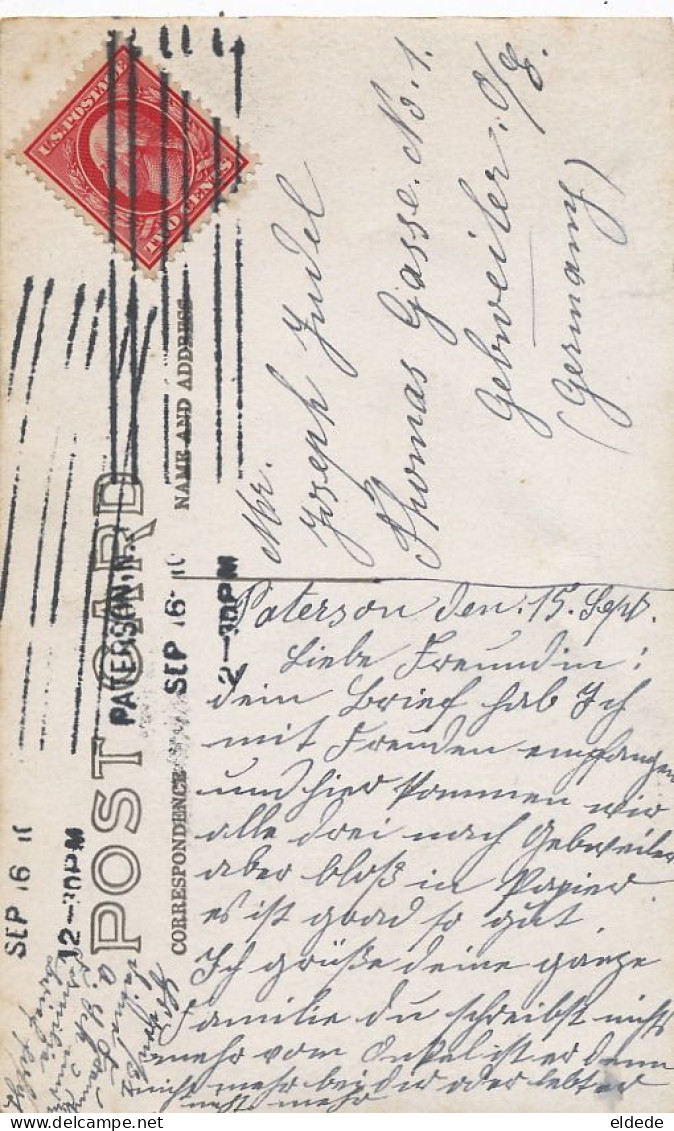 U.S. POSTAGE
TWO CENTS
POST CARD
NAME AND ADDRESS
CORRESPONDENCE
PATERSON, N.J.
SEP 16 10
2-30PM
SEP 16 10
12-30PM
Mr.
Joseph Judel
Thomas Gasse. No. 1.
Gebweiler. O/E.
(Germany)
Paterson den. 15. Sept.
Liebe Freundin:
dein Brief hab Ich
mit Freuden empfangen
und hier kommen wir
alle drei nach Gebweiler
aber bloß in Papier
es ist grad so gut
Ich grüße deine ganze
Familie du schreibst nichts
mehr vom Onkel ist er denn
nicht mehr bei dir oder lebt er
nicht mehr
eldede